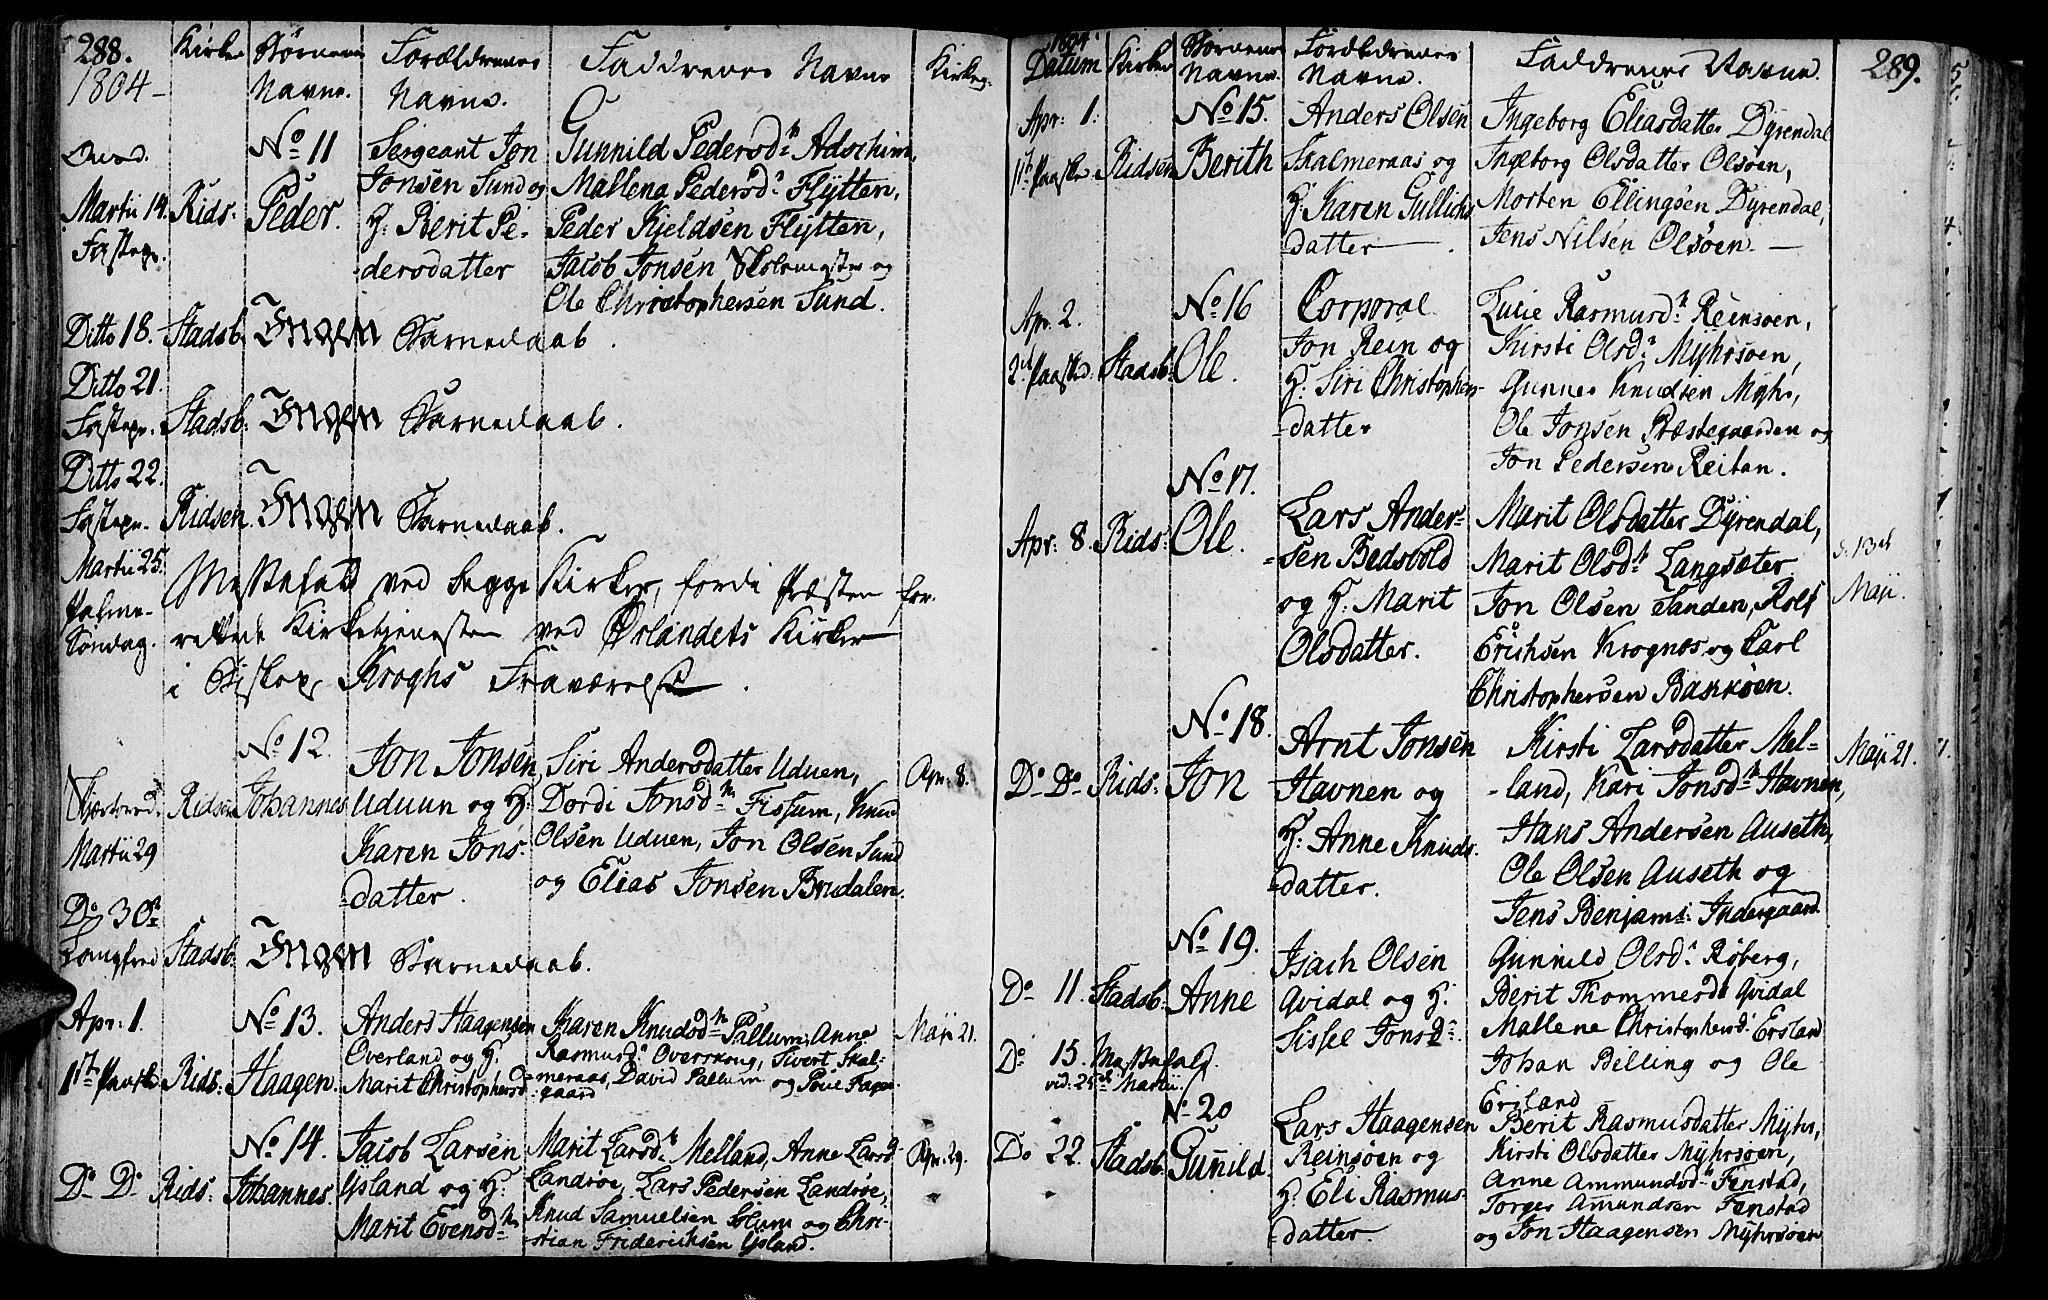 288.
1804 -
Kirke
Børnenes
Navne.
Forældrenes
Navne.
Faddrenes Navne
Kirkeg:
Onsd.
Martii 14.
Fastepr.
Rids:
No 11
Peder.
Sergeant Jon
Jonsen Sund og
H: Berit Pe-
dersdatter
Gunnild Pedersd:
Mallena Pedersd: Flÿtten,
Peder Kjeldsen Flÿtten,
Jacob Jonsen Skolemester og
Ole Christophersen Sund.
Ditto 18. Stadsb. Ingen Barnedaab.
Ditto 21.
Fastepr. Stadsb: Ingen Barnedaab.
Ditto 22.
Fastepr. Ridsen Ingen Barnedaab.
Martii 25.
Palme-
Søndag.
Messefald ved begge Kirker, fordi Præsten for-
rettede Kirketjenesten ved Ørlandets Kirker
i Biskop Kroghs Fraværelse.
Skjertorsd.
Martii 29
Ridsen
No 12
Johannes
Jon Jonsen
Uduun og H:
Karen Jons-
datter.
Siri Andersdatter Uduen,
Dordi Jonsd: Fissum, Knud
Olsen Uduen, Jon Olsen Sund
og Elias Jonsen Brudalen.
Apr. 8.
Do 30
Langfred Stadsb. Ingen Barnedaab.
Apr: 1.
1ste Paaske
Rids:
No 13.
Haagen.
Anders Haagensen
Overland og H:
Marit Christophersd
Karen Knudsd: Pallum, Anne
Rasmusd: Overskrug, Sivert Skal-
meraas, David Pallum og Poul Fager-
gaard
Maji 21.
Do Do
Rids:
No 14.
Johannes.
Jacob Larsen
Ÿsland og H:
Marit Evensd:
Marit Larsd: Melland, Anne Larsd
Landrøe, Lars Pedersen Landrøe,
Knud Samuelsen Solum og Chri-
stian Frideriksen Ÿsland.
Apr. 29.
289.
1804.
Datum
Kirke
Børnenes
Navne.
Forældrenes
Navne.
Faddrenes Navne.
Apr: 1.
1ste Paaske
Ridsen
No 15.
Berith
Anders Olsen
Skalmeraas og
H: Karen Gullichs
datter
Ingeborg Eliasdatter Dÿrendal
Ingeborg Olsdatter Olsøen,
Morten Ellingsen Dÿrendal,
Jens Nilsen Olsøen. -
Apr. 2.
2d Paasked:
Stadsb:
No 16
Ole.
Corporal
Jon Rein og
H: Siri Christophers-
datter
Lucie Rasmusd: Reinsøen,
Kirsti Olsd: Mÿhrsøen,
Gunner Knudsen Mÿhr,
Ole Jonsen Præstegaarden og
Jon Pedersen Reitan.
Apr: 8.
Rids:
No 17.
Ole.
Lars Ander-
sen Bedsvold
og H: Marit
Olsdatter.
Marit Olsdatter Dÿrendal,
Marit Olsd: Langsæter
Jon Olsen Sanden, Rolf
Erichsen Krognes og Carl
Christophersen Bakkøen.
d. 13de
Maji.
Do Do
Rids:
No 18.
Jon
Arnt Jonsen
Havnen og
H: Anne Knuds-
datter.
Kirsti Larsdatter Mel-
land, Kari Jonsd: Havnen,
Hans Andersen Auseth,
Ole Olsen Auseth og
Jens Benjams: Indergaard
Maji 21.
Do 11.
Stadsb:
No 19.
Anne
Isach Olsen
Qvidal og H:
Sissel Jonsd:
Gunnild Olsd: Røberg,
Berit Thommesd: Qvidal
Mallene Christophersd: Ersland
Johan Billing og Ole
Ersland
Do 15. Messefald.
vid: 25de Martii.
Do 22.
Stadsb:
No 20
Gunild.
Lars Haagensen
Reinsøen og
H: Eli Rasmus-
datter.
Berit Rasmusdatter Mÿhr,
Kirsti Olsdatter Mÿhrsøen,
Anne Ammundsd: Fenstad,
Torger Amundsen Fenstad
og Jon Haagensen Mÿhrsøen